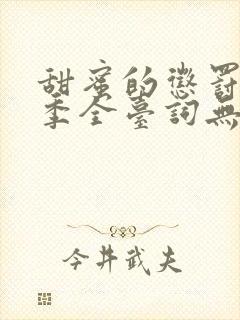 甜蜜的懲罰
季全臺詞無
今井武夫